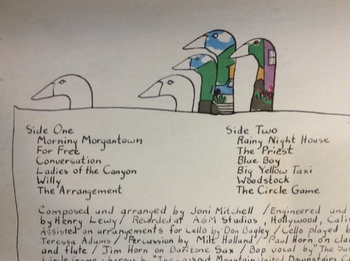 Side One
Morning Morgantown
For Free
Conversation
Ladies of the Canyon
Willy
The Arrangement
Side Two
Rainy Night House
The Priest
Blue Boy
Big Yellow Taxi
Woodstock
The Circle Game
Composed and arranged by Joni Mitchell / Engineered and
by Henry Lewy / Recorded at A&M Studios, Hollywood, Cali
Assisted on arrangements for Cello by Don Bagley / Cello played b
Teressa Adams / Percussion by Milt Holland / Paul Horn on cla
and flute / Jim Horn on Baritone Sax / Bop vocal by "The Sas